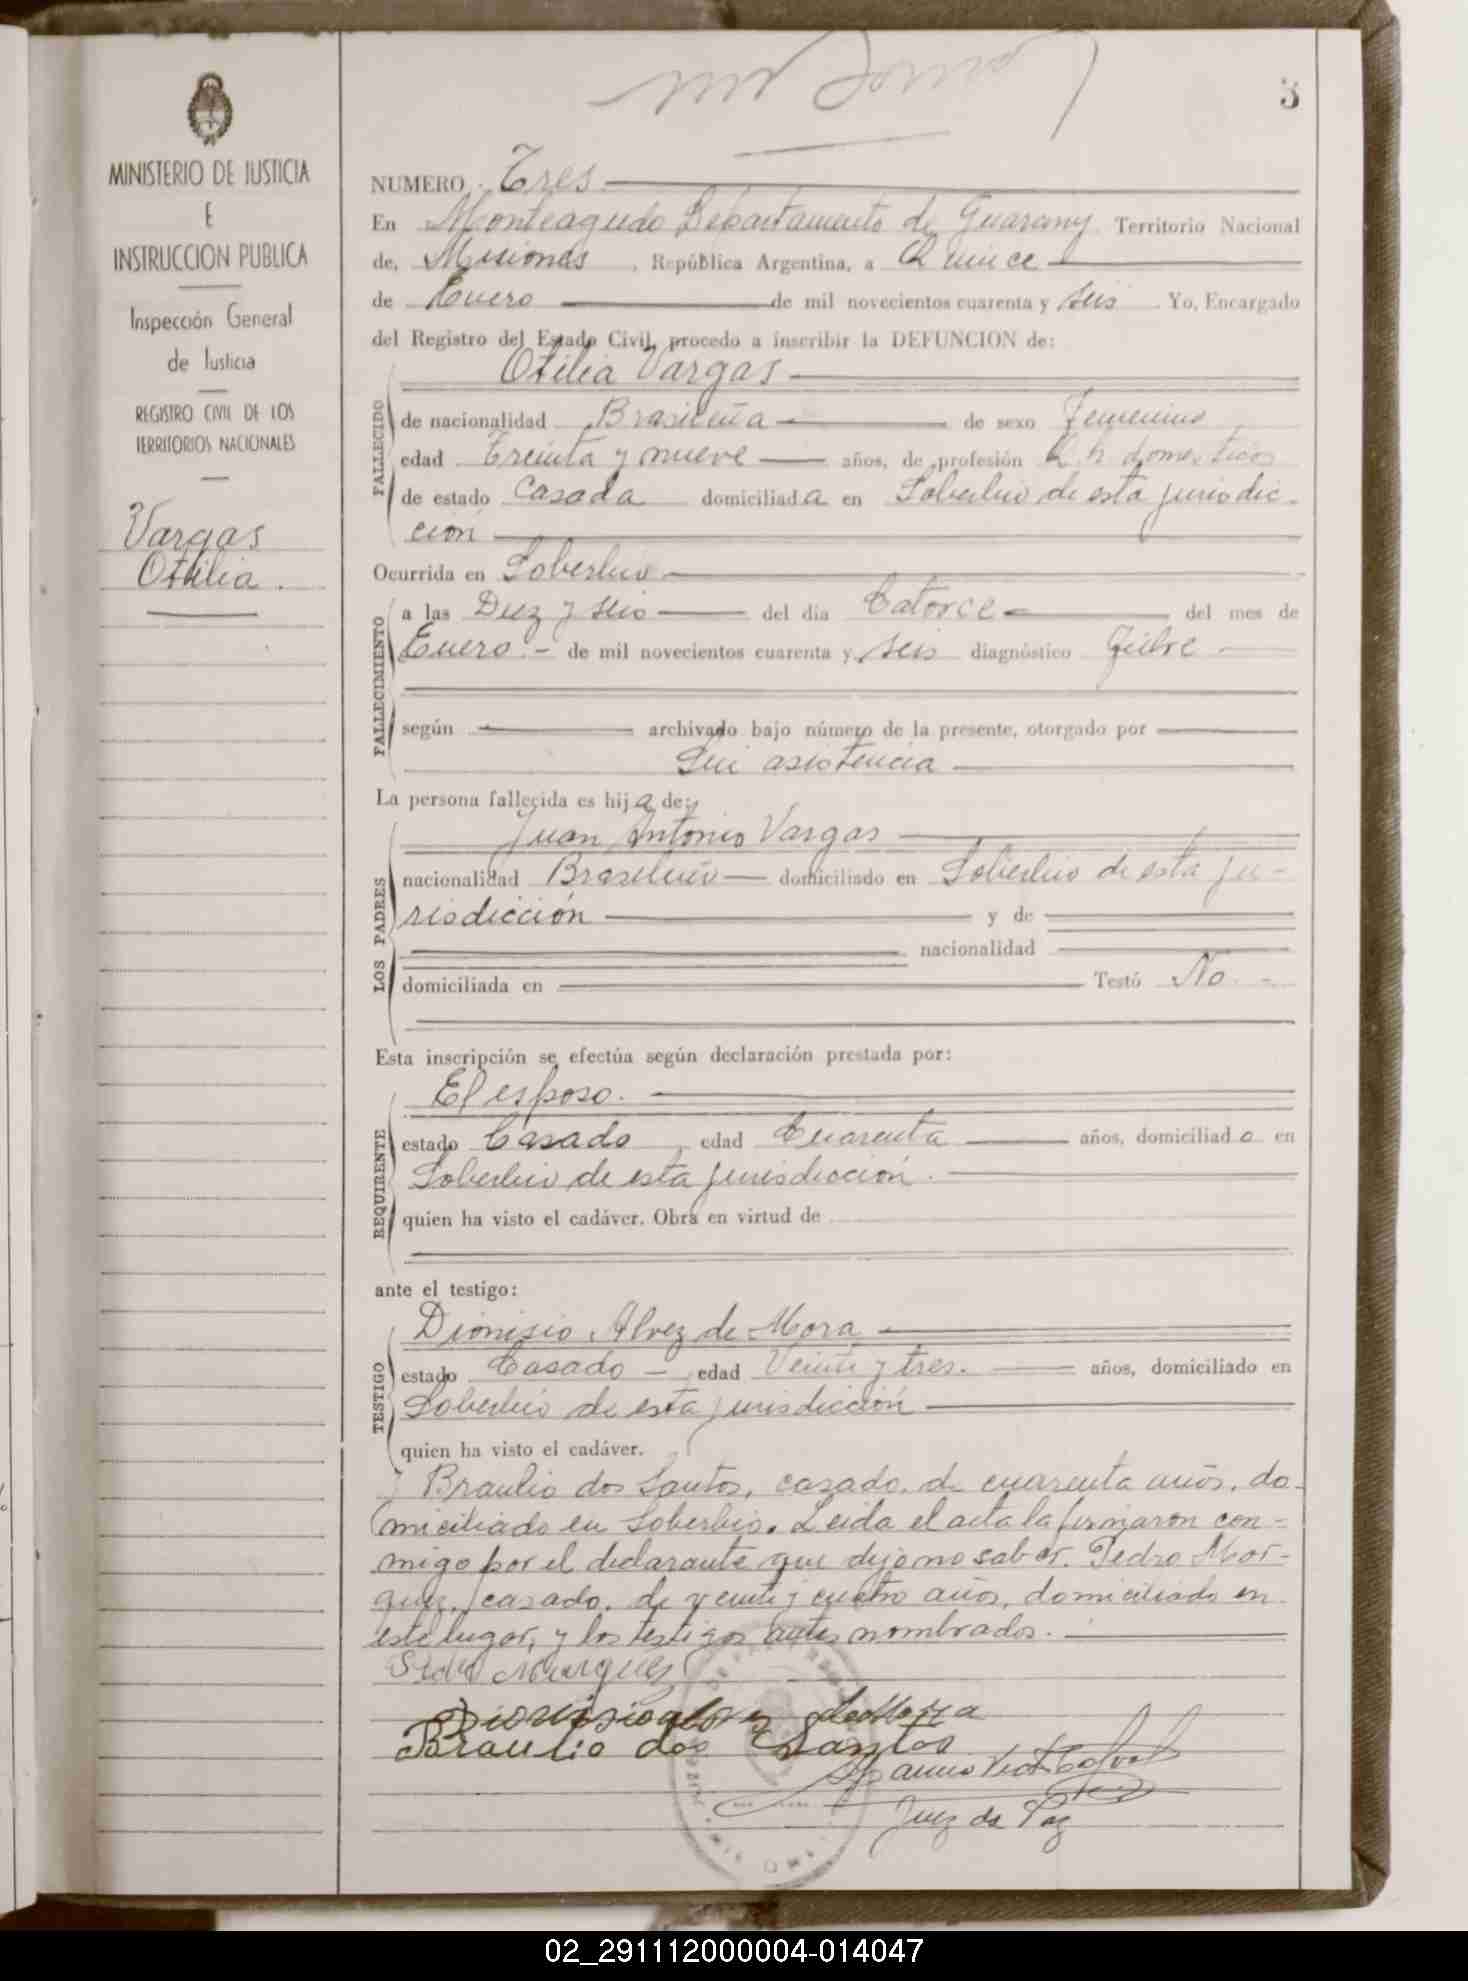 3
MINISTERIO DE JUSTICIA
E
INSTRUCCION PUBLICA
Inspección General
de Justicia
REGISTRO CIVIL DE LOS
TERRITORIOS NACIONALES
Vargas
Otilia.
NUMERO Tres
En Monteagudo Departamento de Guarany Territorio Nacional
de, Misiones, República Argentina, a Quince
de Enero de mil novecientos cuarenta y seis. Yo, Encargado
del Registro del Estado Civil, procedo a inscribir la DEFUNCION de:
FALLECIDO
Otilia Vargas
de nacionalidad Brasileña de sexo Femenino
edad Treinta y nueve años, de profesión Q. h domesticos
de estado Casada domiciliada en Soberbio de esta jurisdic-
ción
Ocurrida en Soberbio
FALLECIMIENTO
a las Diez y seis del día Catorce del mes de
Enero.- de mil novecientos cuarenta y seis diagnóstico Fiebre
según archivado bajo número de la presente, otorgado por
Sin asistencia
La persona fallecida es hija de:
LOS PADRES
Juan Antonio Vargas
nacionalidad Brasileño domiciliado en Soberbio de esta ju-
risdicción y de
nacionalidad
domiciliada en Testó No.-
Esta inscripción se efectúa según declaración prestada por:
REQUIRENTE
El esposo.
estado Casado edad Cuarenta años, domiciliado en
Soberbio de esta jurisdicción.
quien ha visto el cadáver. Obra en virtud de
ante el testigo:
TESTIGO
Dionisio Alvez de Mora
estado Casado - edad Veinte y tres. años, domiciliado en
Soberbio de esta jurisdicción
quien ha visto el cadáver.
y Braulio dos Santos, casado, de cuarenta años, do-
miciliado en Soberbio. Leida el acta la firmaron con-
migo por el declarante que dijo no saber. Pedro Mar-
quez, casado, de veinte y cuatro años, domiciliado en
este lugar, y los testigos antes nombrados.
Marques
Dionisio alvez de Mora
Braulio dos Santos
Juez de Paz
02_291112000004-014047